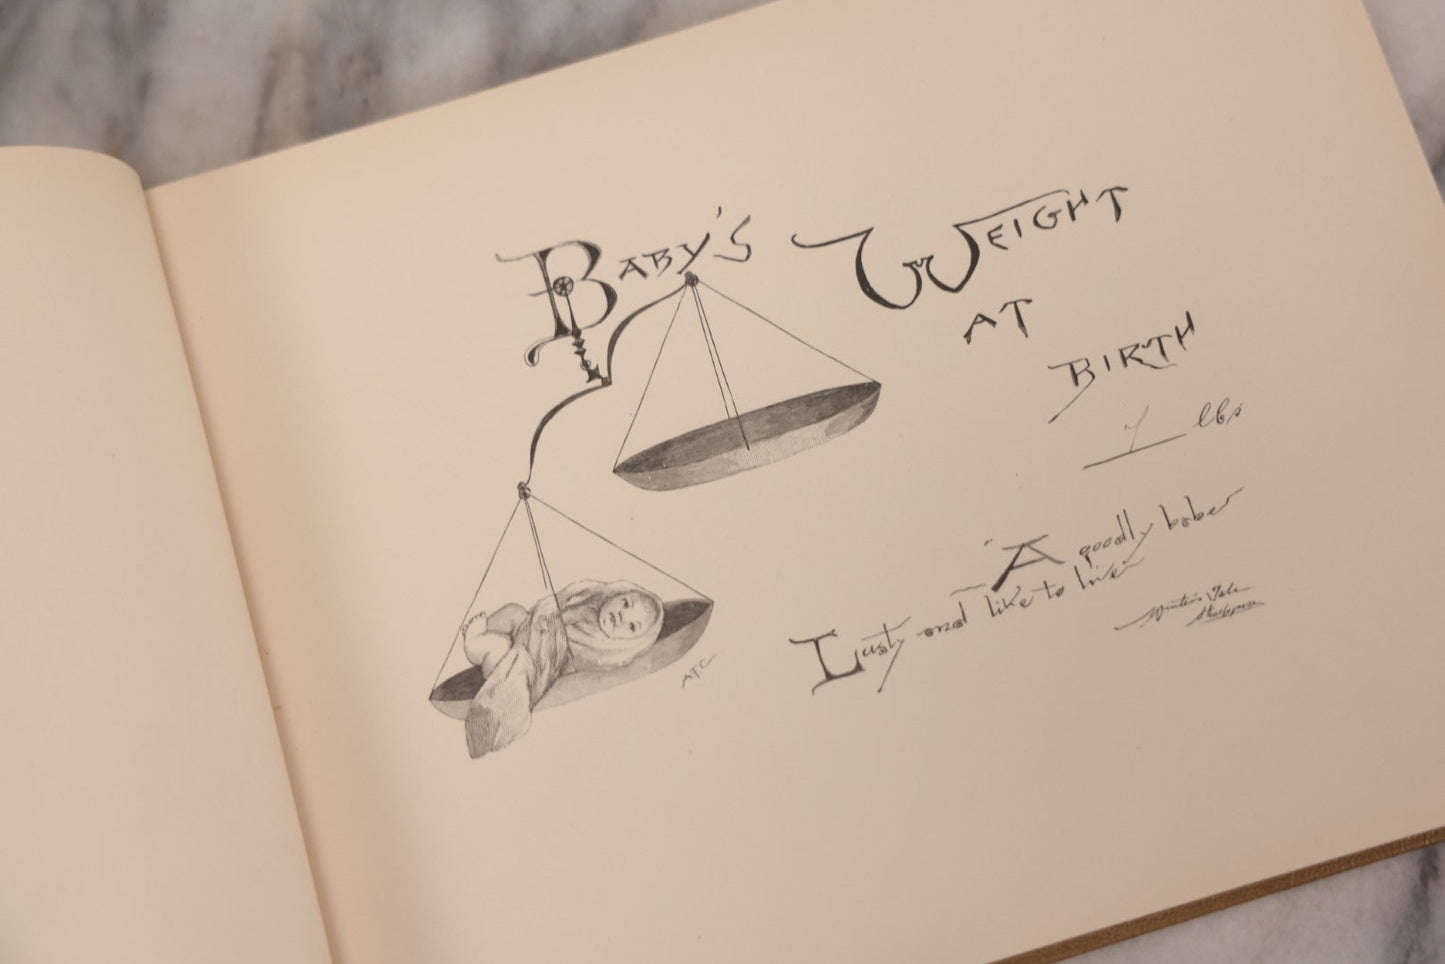 BABY'S WEIGHT
AT
BIRTH
7 lbs
"A goodly babe
Lusty and like to live"
Winter's Tale
Shakspeare
ATC